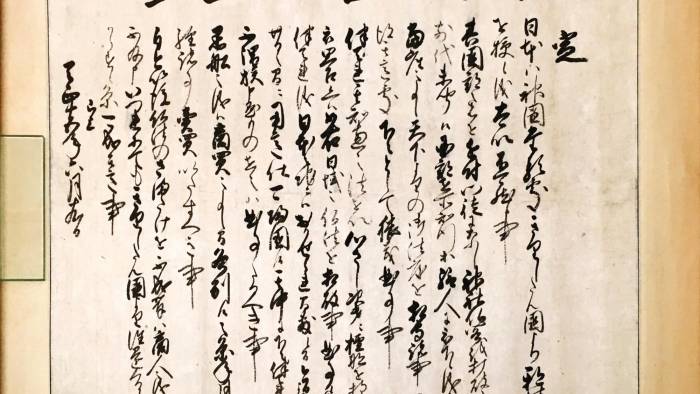 定
日本ハ神国たる処きりしたん国より邪
を授候儀太以不可然候事
其国郡之者を近付門徒になし神社仏閣を打破
前代未聞候国郡在所知行等給人に被下候儀
当座之事候天下よりの御法度を相守諸事
得其意処下々として猥義曲事事
伴天連其知恵之法を以心さし次第に檀那を持
被思召候へハ如右日域之仏法を相破事曲事
伴天連儀日本之地ニハおかせられ間敷候間今日
廿日之間に用意仕可帰国候其中に下々伴
不謂族申懸もの在之ハ曲事たるへき事
黒船之儀ハ商買之事候間各別候之条年月
経諸事売買いたすへき事
自今以後仏法のさまたけを不成輩ハ商人之儀
不及申いつれにてもきりしたん国より往還
くるしからす候条可成其意事
已上
天正十五年六月十九日